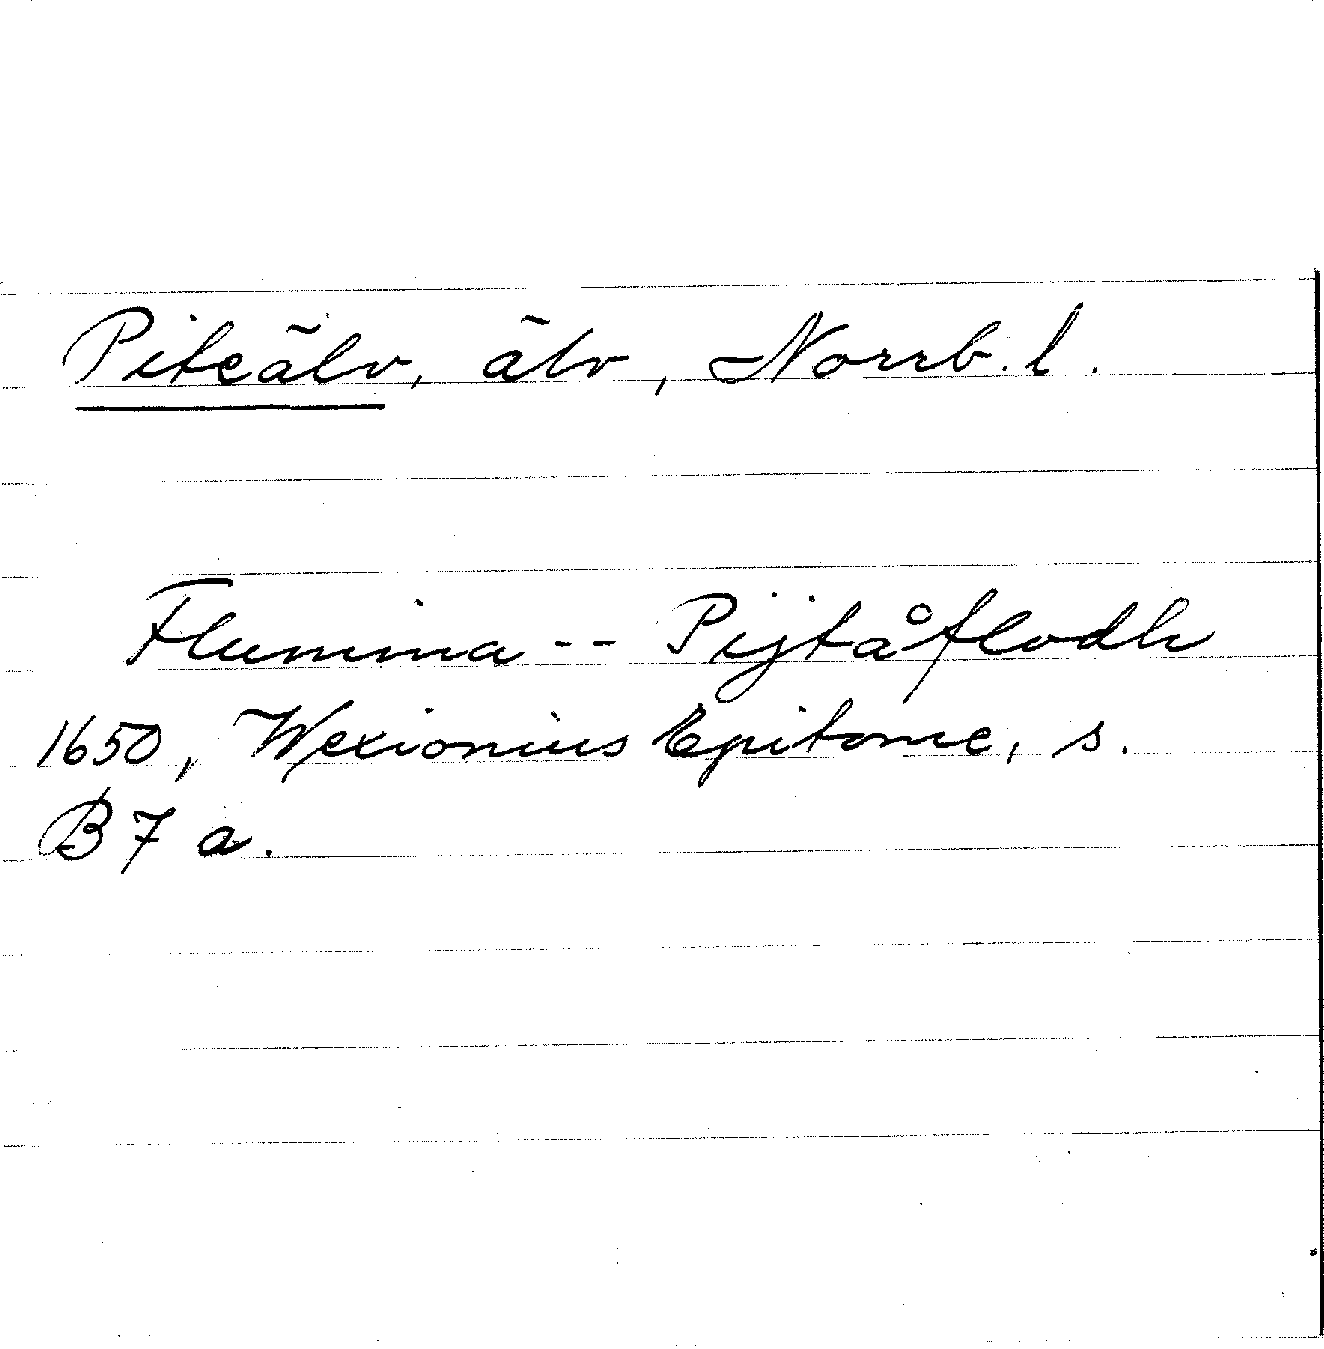 Piteälv, älv, Norrb. l.
Flumina -- Pijtåflodh
1650, Wexionius Epitome, s.
B 7 a.